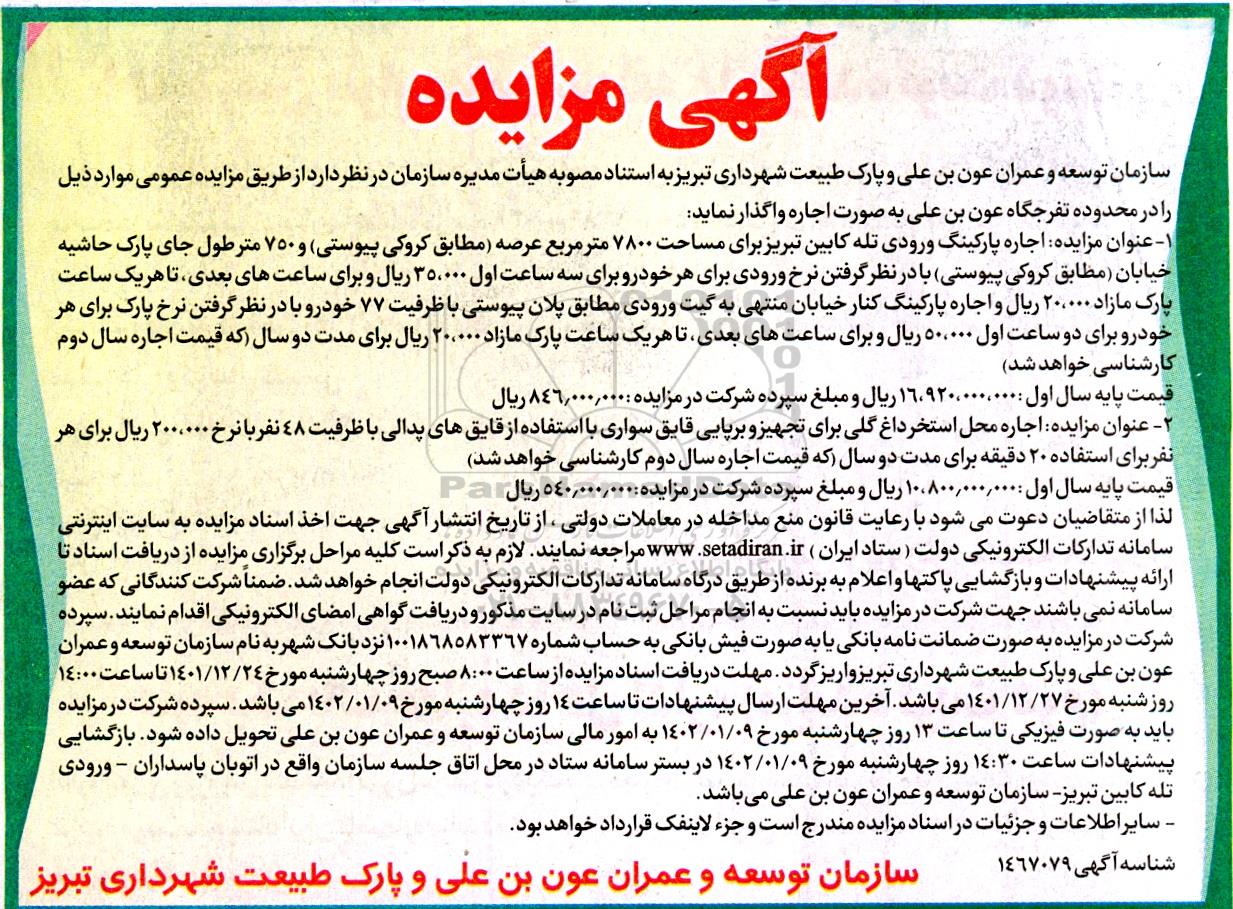 آگهی مزایده
سازمان توسعه و عمران عون بن علی و پارک طبیعت شهرداری تبریز به استناد مصوبه هیأت مدیره سازمان در نظر دارد از طریق مزایده عمومی موارد ذیل
را در محدوده تفرجگاه عون بن علی به صورت اجاره واگذار نماید:
۱- عنوان مزایده: اجاره پارکینگ ورودی تله کابین تبریز برای مساحت ۷۸۰۰ مترمربع عرصه (مطابق کروکی پیوستی) و ۷۵۰ متر طول جای پارک حاشیه
خیابان (مطابق کروکی پیوستی) با در نظر گرفتن نرخ ورودی برای هر خودرو برای سه ساعت اول ۳۵،۰۰۰ ریال و برای ساعت های بعدی، تا هر یک ساعت
پارک مازاد ۲۰،۰۰۰ ریال و اجاره پارکینگ کنار خیابان منتهی به گیت ورودی مطابق پلان پیوستی با ظرفیت ۷۷ خودرو با در نظر گرفتن نرخ پارک برای هر
خودرو برای دو ساعت اول ۵۰،۰۰۰ ریال و برای ساعت های بعدی، تا هر یک ساعت پارک مازاد ۲۰،۰۰۰ ریال برای مدت دو سال (که قیمت اجاره سال دوم
کارشناسی خواهد شد)
قیمت پایه سال اول: ۱۶،۹۲۰،۰۰۰،۰۰۰ ریال و مبلغ سپرده شرکت در مزایده: ۸۴۶،۰۰۰،۰۰۰ ریال
۲- عنوان مزایده: اجاره محل استخر داغ گلی برای تجهیز و برپایی قایق سواری با استفاده از قایق های پدالی با ظرفیت ۴۸ نفر با نرخ ۲۰۰،۰۰۰ ریال برای هر
نفر برای استفاده ۲۰ دقیقه برای مدت دو سال (که قیمت اجاره سال دوم کارشناسی خواهد شد)
قیمت پایه سال اول: ۱۰،۸۰۰،۰۰۰،۰۰۰ ریال و مبلغ سپرده شرکت در مزایده: ۵۴۰،۰۰۰،۰۰۰ ریال
لذا از متقاضیان دعوت می شود با رعایت قانون منع مداخله در معاملات دولتی، از تاریخ انتشار آگهی جهت اخذ اسناد مزایده به سایت اینترنتی
سامانه تدارکات الکترونیکی دولت (ستاد ایران) www.setadiran.ir مراجعه نمایند. لازم به ذکر است کلیه مراحل برگزاری مزایده از دریافت اسناد تا
ارائه پیشنهادات و بازگشایی پاکتها و اعلام به برنده از طریق درگاه سامانه تدارکات الکترونیکی دولت انجام خواهد شد. ضمناً شرکت کنندگانی که عضو
سامانه نمی باشند جهت شرکت در مزایده باید نسبت به انجام مراحل ثبت نام در سایت مذکور و دریافت گواهی امضای الکترونیکی اقدام نمایند. سپرده
شرکت در مزایده به صورت ضمانت نامه بانکی یا به صورت فیش بانکی به حساب شماره ۱۰۰۱۸۶۸۵۸۳۳۶۷ نزد بانک شهر به نام سازمان توسعه و عمران
عون بن علی و پارک طبیعت شهرداری تبریز واریز گردد. مهلت دریافت اسناد مزایده از ساعت ۸:۰۰ صبح روز چهارشنبه مورخ ۱۴۰۱/۱۲/۲۴ تا ساعت ۱۴:۰۰
روز شنبه مورخ ۱۴۰۱/۱۲/۲۷ می باشد. آخرین مهلت ارسال پیشنهادات تا ساعت ۱۴ روز چهارشنبه مورخ ۱۴۰۲/۰۱/۰۹ می باشد. سپرده شرکت در مزایده
باید به صورت فیزیکی تا ساعت ۱۳ روز چهارشنبه مورخ ۱۴۰۲/۰۱/۰۹ به امور مالی سازمان توسعه و عمران عون بن علی تحویل داده شود. بازگشایی
پیشنهادات ساعت ۱۴:۳۰ روز چهارشنبه مورخ ۱۴۰۲/۰۱/۰۹ در بستر سامانه ستاد در محل اتاق جلسه سازمان واقع در اتوبان پاسداران - ورودی
تله کابین تبریز- سازمان توسعه و عمران عون بن علی می باشد.
- سایر اطلاعات و جزئیات در اسناد مزایده مندرج است و جزء لاینفک قرارداد خواهد بود.
شناسه آگهی ۱۴۶۷۰۷۹
سازمان توسعه و عمران عون بن علی و پارک طبیعت شهرداری تبریز